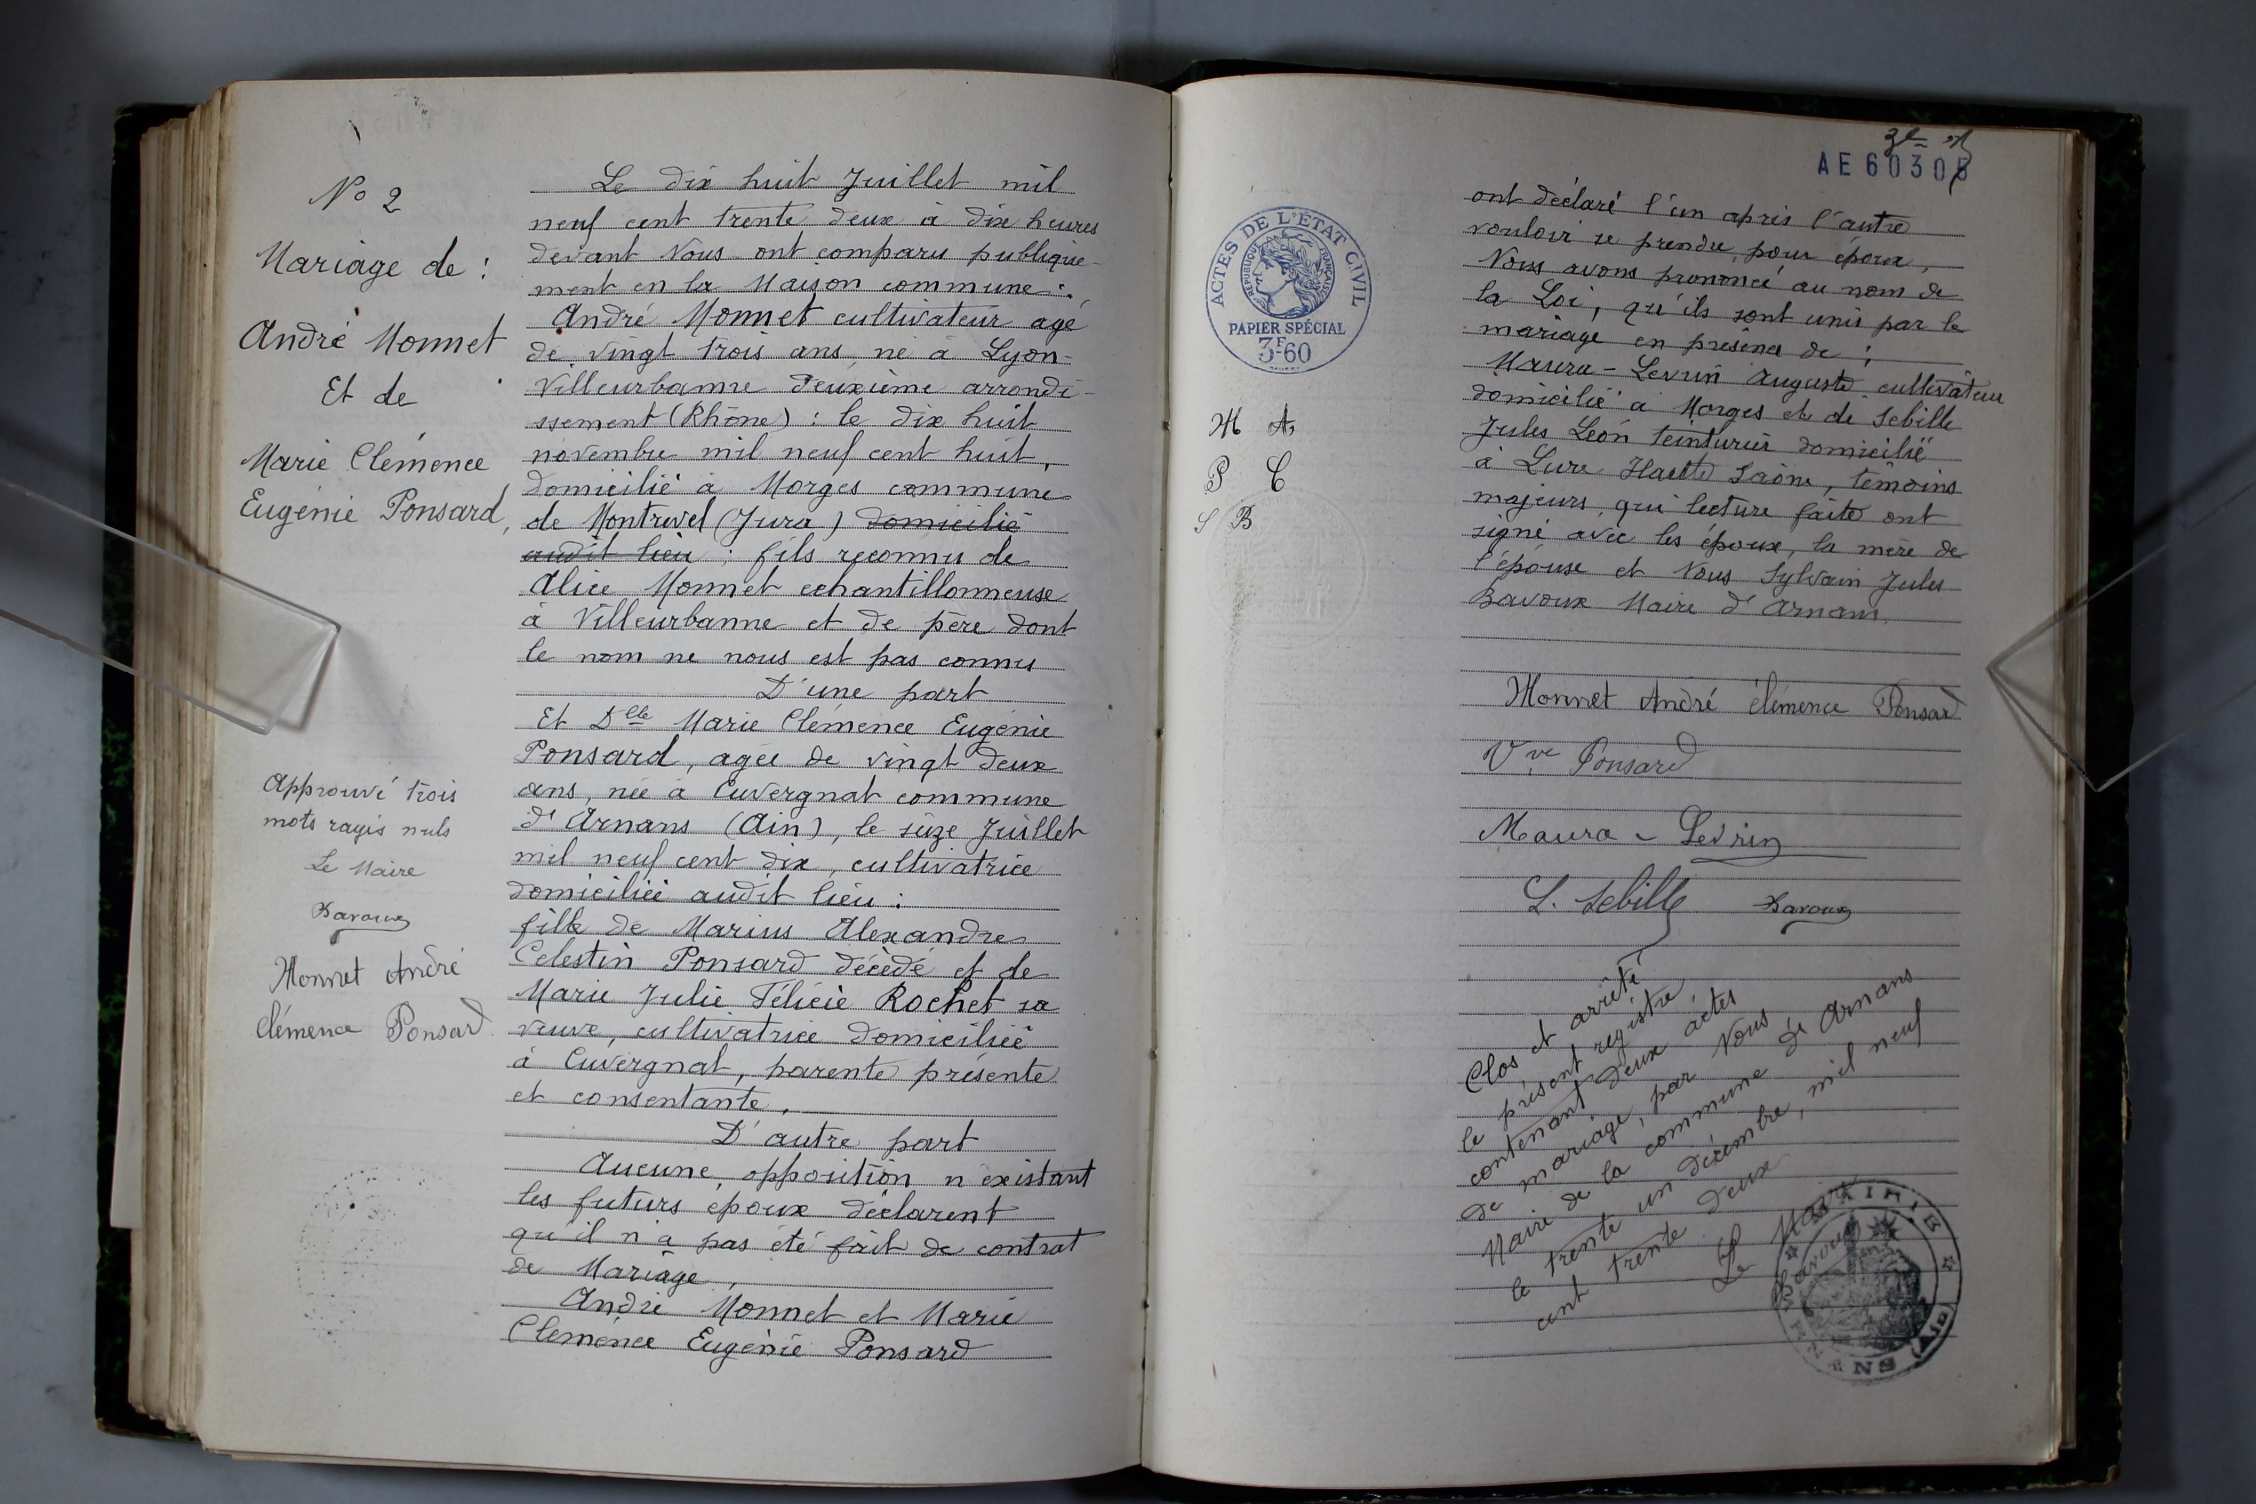 No 2
Mariage de :
André Monnet
Et de
Marie Clémence
Eugénie Ponsard,
Approuvé trois
mots rayés nuls
Le Maire
Bavoux
Monnet André
Clémence Ponsard
Le dix huit Juillet mil
neuf cent trente deux à dix heures
devant Nous ont comparu publique-
ment en la Maison commune :
André Monnet cultivateur agé
de vingt trois ans, né à Lyon-
Villeurbanne deuxième arrondi-
ssement (Rhône) : le dix huit
novembre mil neuf cent huit,
domicilié à Morges commune
de Montrevel (Jura) domicilié
audit lieu : fils reconnu de
Alice Monnet echantillonneuse
à Villeurbanne et de père dont
le nom ne nous est pas connu
D'une part
Et Dlle Marie Clémence Eugénie
Ponsard, agée de vingt deux
ans, née à Cuvergnat commune
d'Arnans (Ain), le seize Juillet
mil neuf cent dix, cultivatrice
domiciliée audit lieu :
fille de Marius Alexandre
Celestin Ponsard décédé et de
Marie Julie Félicie Rochet sa
veuve, cultivatrice domiciliée
à Cuvergnat, parente présente
et consentante,
D'autre part
Aucune opposition n'existant
les futurs époux déclarent
qu'il n'a pas été fait de contrat
de Mariage,
André Monnet et Marie
Clemence Eugénie Ponsard
AE 6030
ACTES DE L'ÉTAT CIVIL
RÉPUBLIQUE FRANÇAISE
PAPIER SPÉCIAL
3F60
M A
P C
S B
ont déclaré l'un après l'autre
vouloir se prendre pour époux,
Nous avons prononcé au nom de
la Loi, qu'ils sont unis par le
mariage en présence de :
Maura - Levrin Auguste cultivateur
domicilié à Morges et de Sebille
Jules Léon teinturier domicilié
à Lure Haute Saône, témoins
majeurs, qui lecture faite ont
signé avec les époux, la mère de
l'épouse et Nous Sylvain Jules
Bavoux Maire d'Arnans.
Monnet André Clémence Ponsard
Vve Ponsard
Maura - Levrin
L. Sebille Bavoux
Clos et arrêté
le présent registre
contenant deux actes
de mariage, par Nous
Maire de la commune de Arnans
le trente un décembre, mil neuf
cent trente deux
Le Maire
Bavoux
MAIRIE
(Ain)